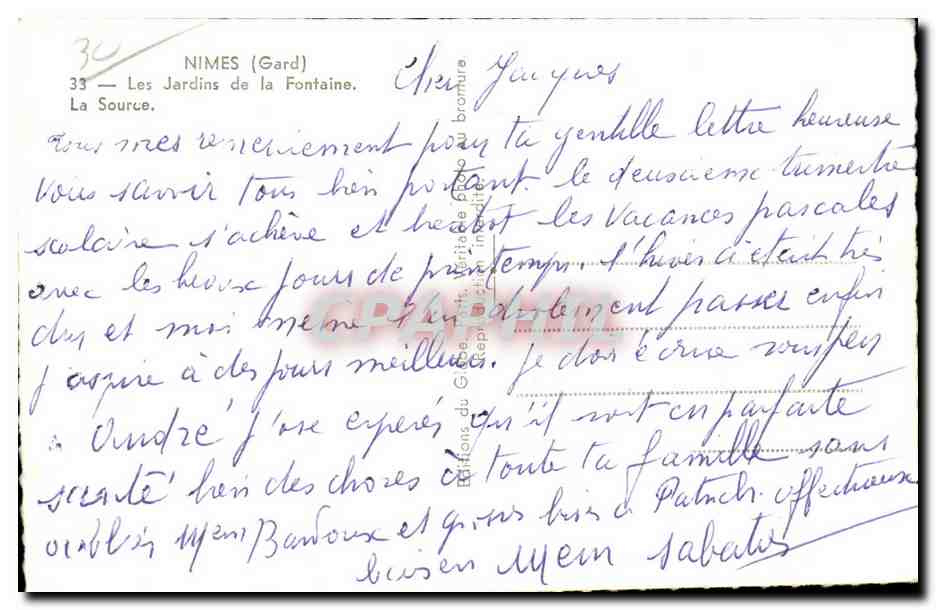 30
NIMES (Gard)
33 — Les Jardins de la Fontaine.
La Source.
Cher Jacques
Tous mes remerciement pour ta gentille lettre heureuse
vous savoir tous bien portant. le deuxieme trimestre
scolaire s'achève et bientot les vacances pascales
avec les beaux jours de printemps. l'hiver a était très
dur et moi même l'ai drolement passer enfin
j'aspire à des jours meilleurs. je dois écrire sous peu
à André j'ose esperés qu'il soit en parfaite
santé bien des choses à toute ta famille sans
oublier Mem Bardoux et grosses bises à Patrick. affectueux
baisers Mem Sabatier
Editions du Globe, Paris. Véritable photo au bromure.
Reproduction interdite.
CPAPHIL